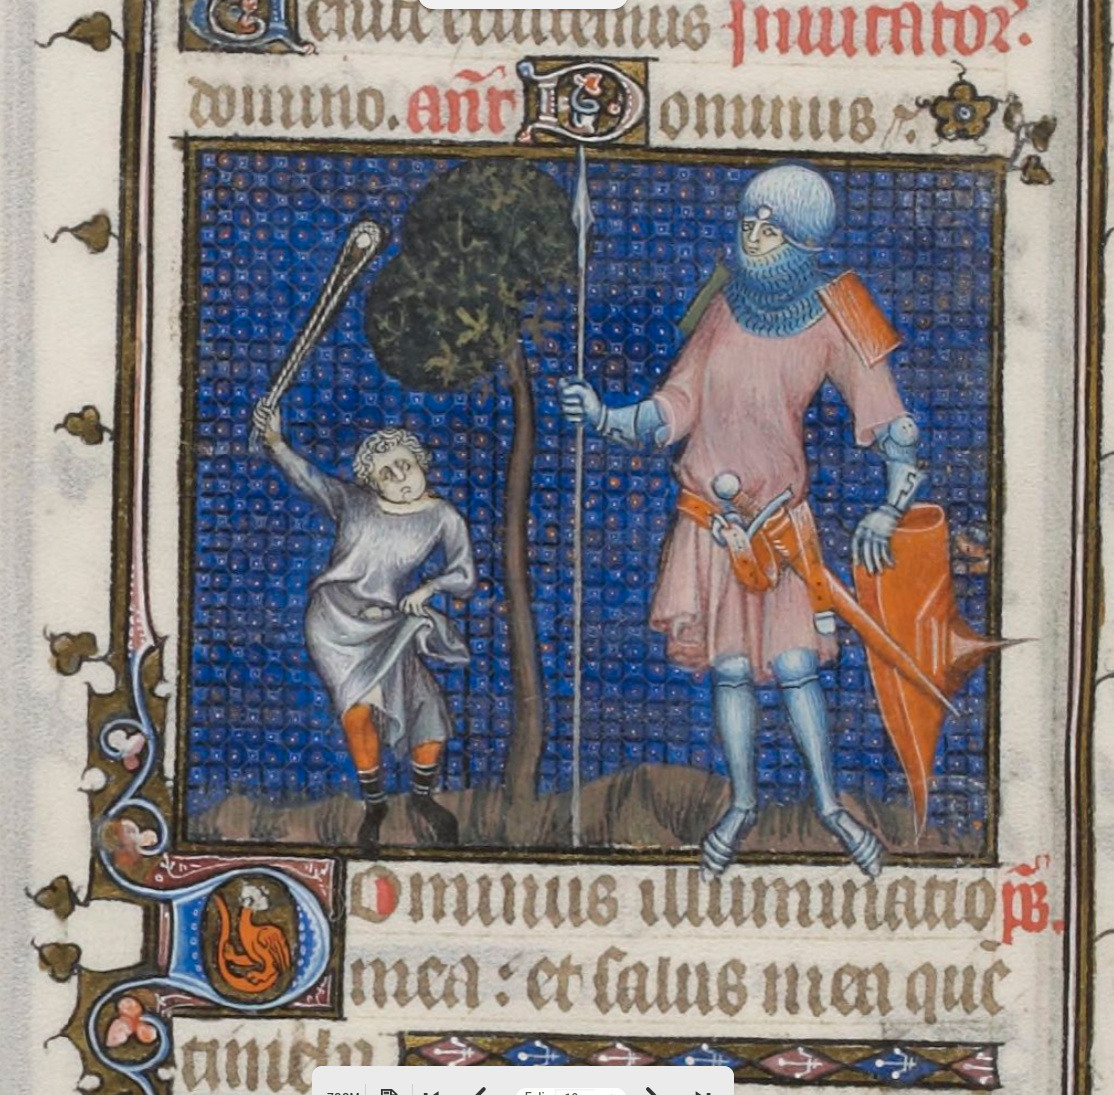 Venite exultemus Inuitator̄.
domino. an̄r Dominus
Dominus illuminatio ps̄.
mea : et salus mea quē
timebo
ZOOM